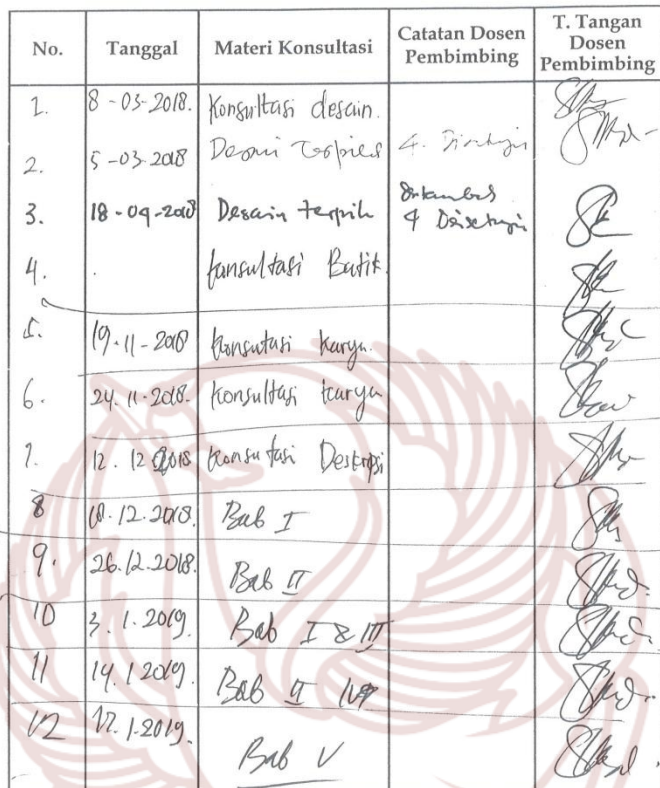 No. Tanggal Materi Konsultasi Catatan Dosen Pembimbing T. Tangan Dosen Pembimbing
1. 8-03-2018. Konsultasi desain.
2. 5-03-2018 4. Disetujui
3. 18-09-2018 Desain terpilih 4 Disetujui
4. . Konsultasi Batik.
5. 19-11-2018 Konsutasi karya.
6. 24.11-2018. Konsultasi karya
7. 12.12 2018 Konsutasi Deskripsi
8 .12.2018. Bab I
9. 26.12.2018. Bab II
10 3.1.2019. Bab I & III
11 14.12019. Bab II IV
12 17.1-2019. Bab V